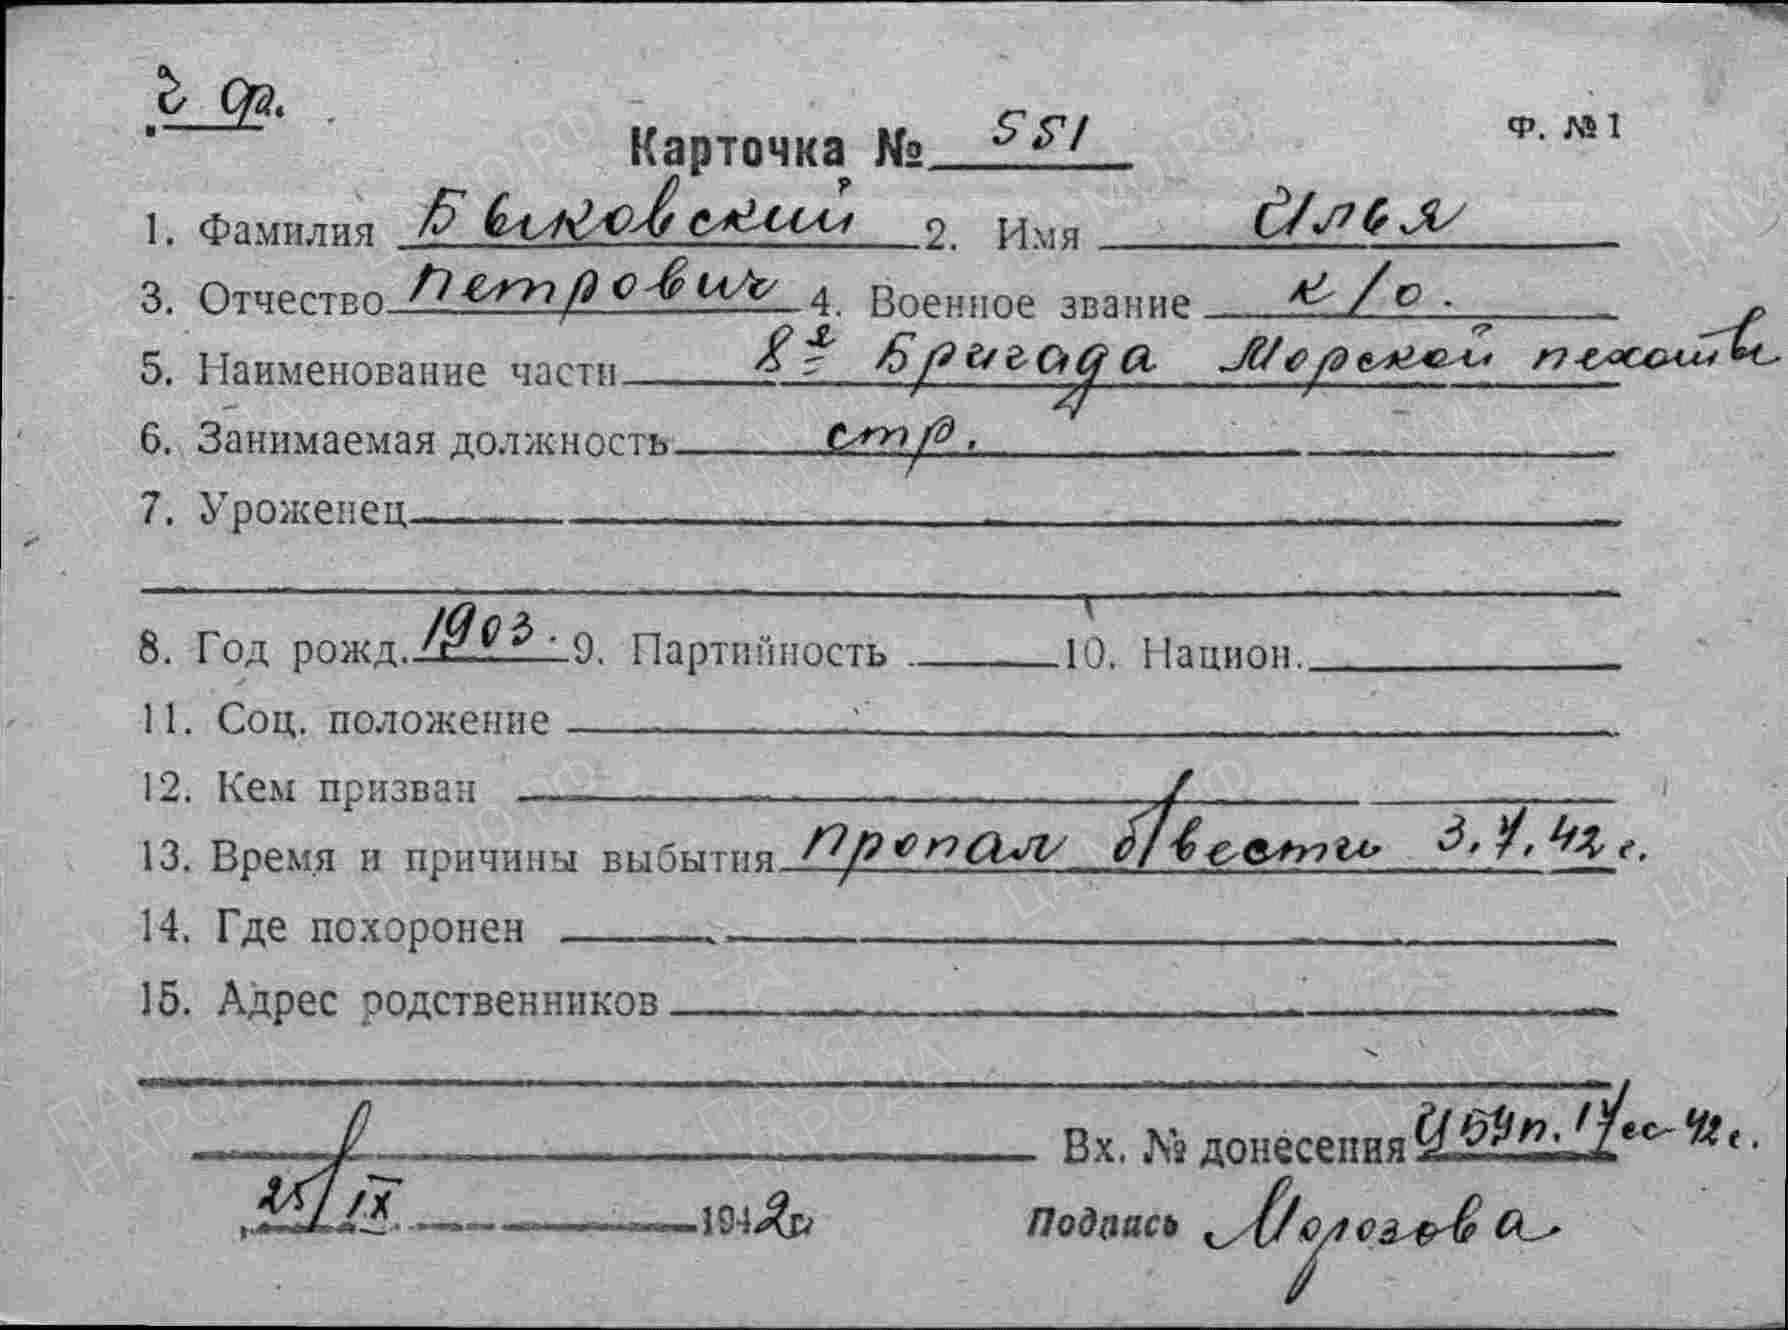 Ф. № 1
Карточка № 551
1. Фамилия Быковский 2. Имя Илья
3. Отчество Петрович 4. Военное звание к/о.
5. Наименование части 8я Бригада Морской пехоты
6. Занимаемая должность стр.
7. Уроженец
8. Год рожд. 1903. 9. Партийность 10. Национ.
11. Соц. положение
12. Кем призван
13. Время и причины выбытия Пропал б/вести 3.7.42 г.
14. Где похоронен
15. Адрес родственников
Вх. № донесения 42 г.
25/IX 1942 г.
Подпись Морозова